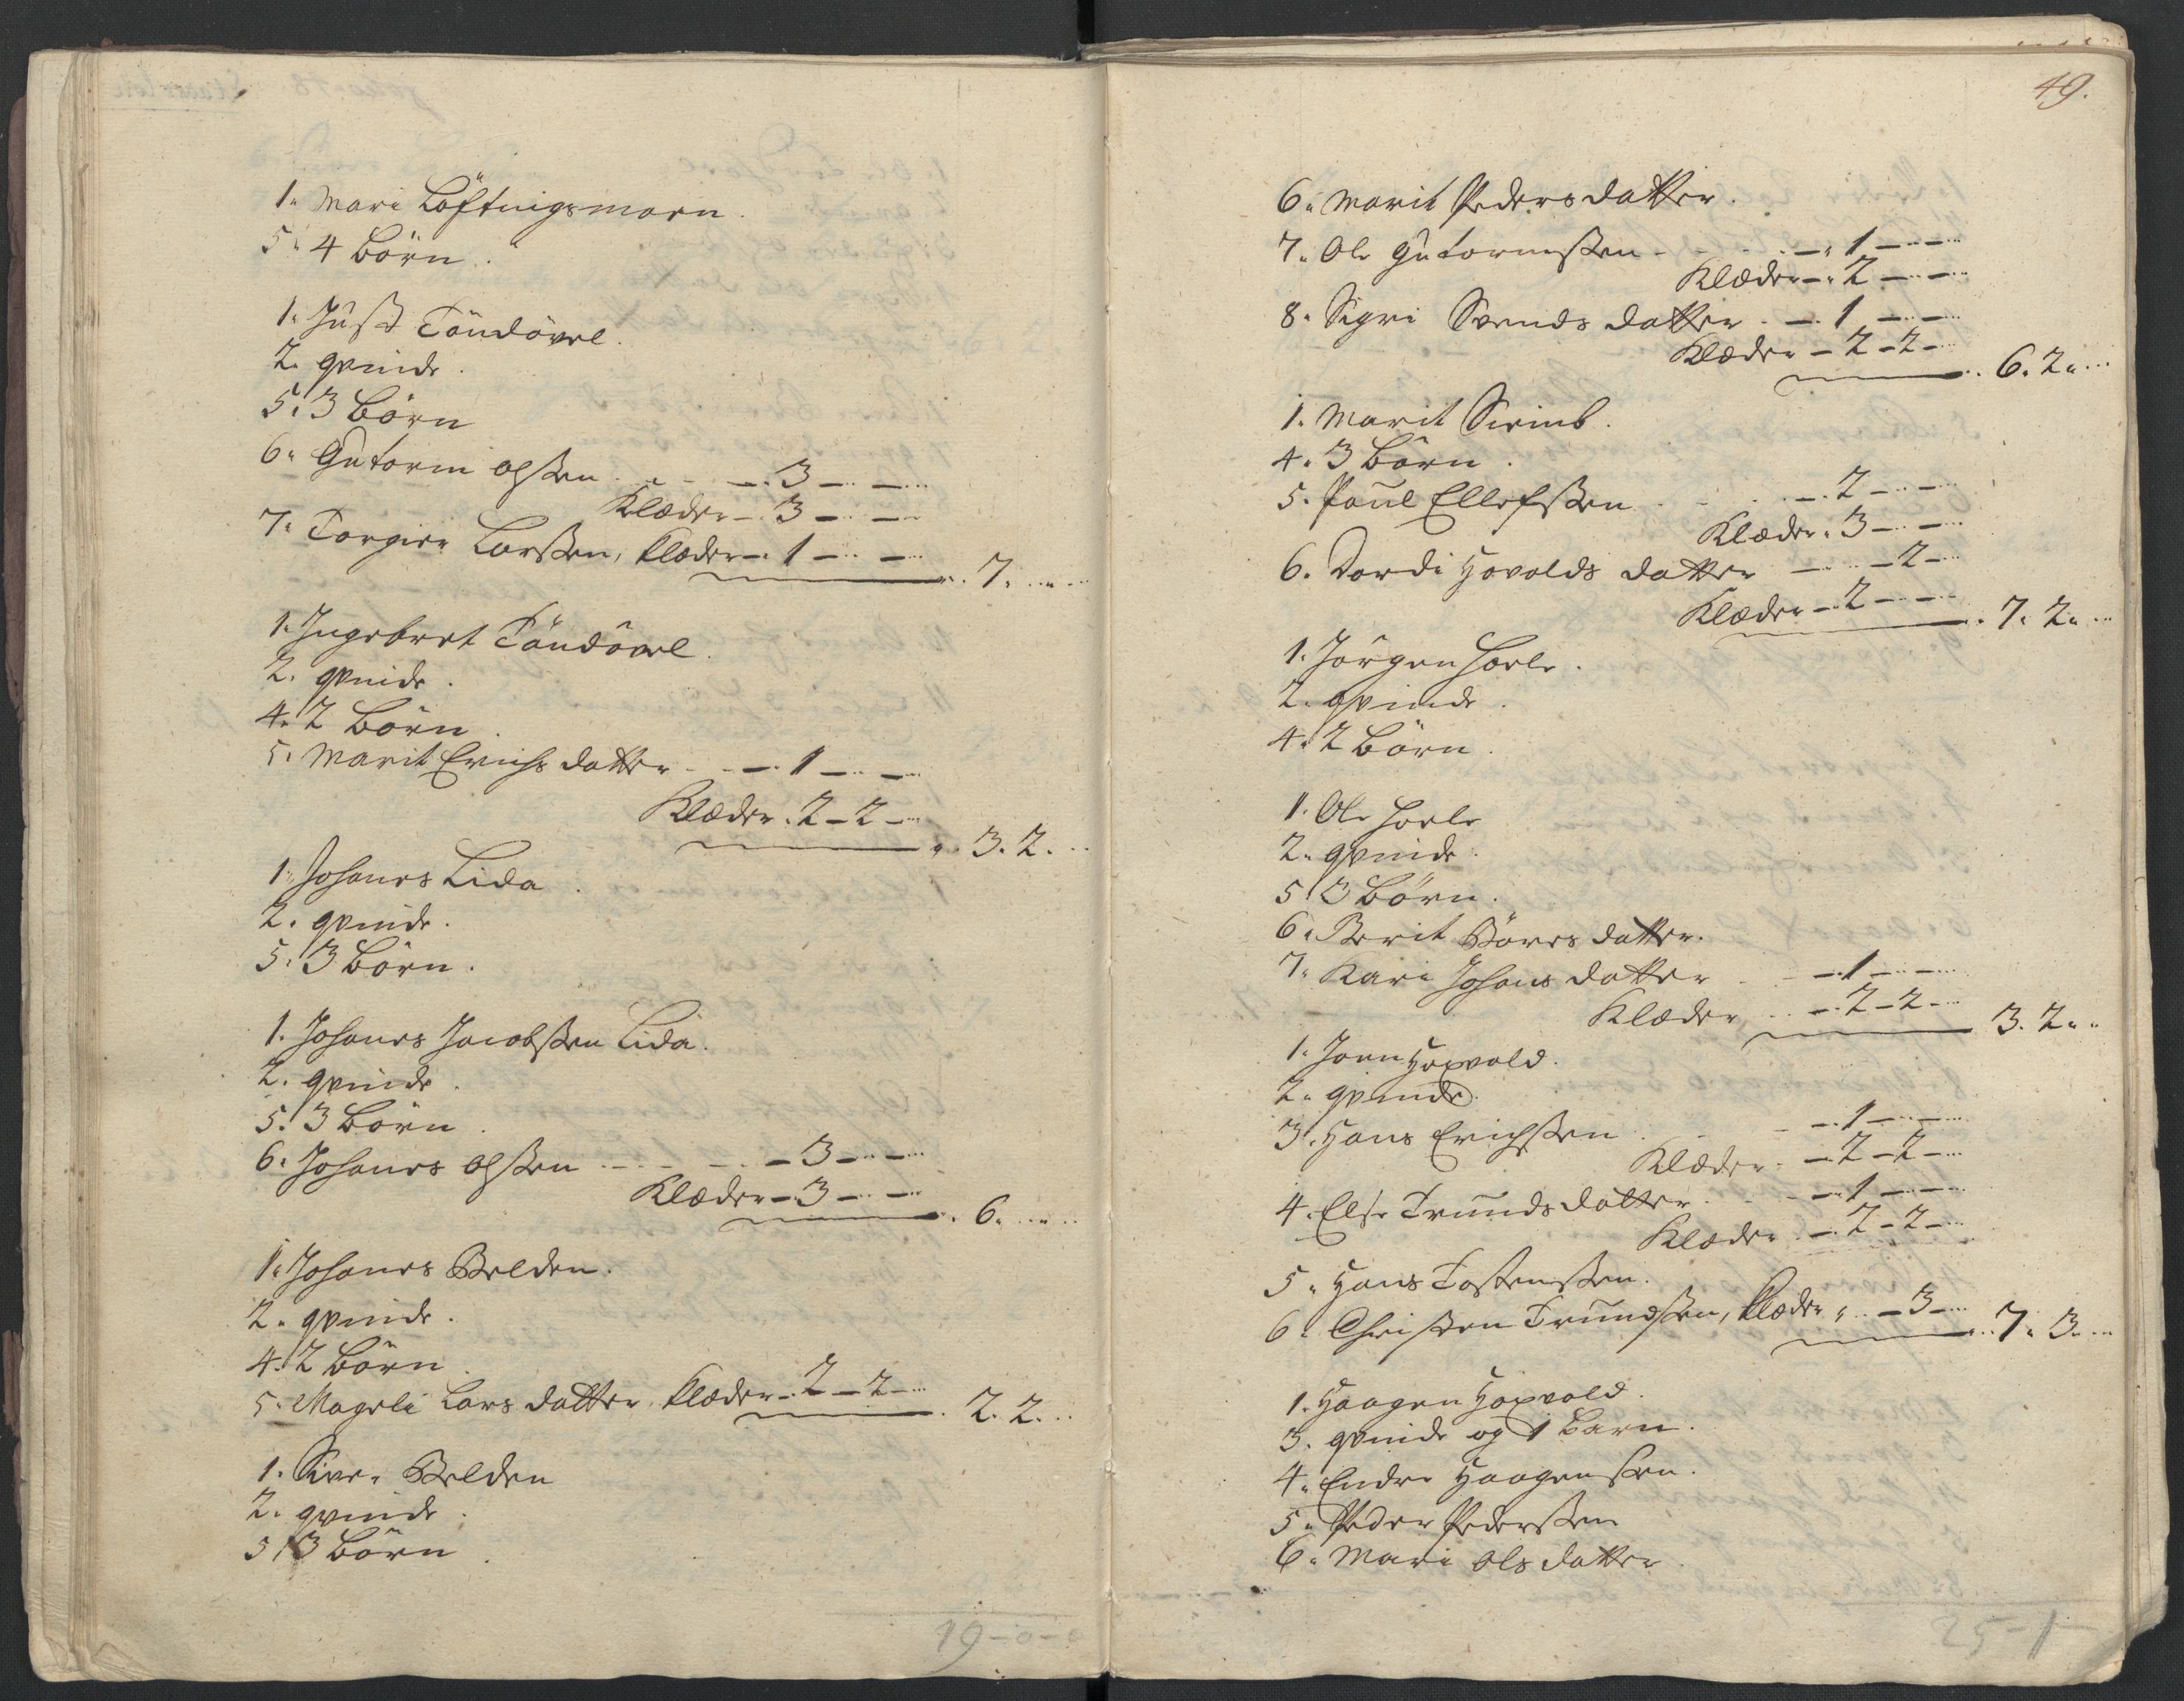 1. Mari Löftnigsmoen.
5. 4 Börn.
1. Juſt Töndövel.
2. qvinde.
5. 3 Börn
6. Gutorm olſsen - - - 3 - -
Klæder - 3 - -
7. Torgier Larſsen, klæder - 1 - -
7.
1. Ingebret Töndövel.
2. qvinde.
4. 2 Börn.
5. Marit Erichs datter - - 1 - -
Klæder . 2 - 2 -
3. 2.
1. Johanes Lida.
2. qvinde.
5. 3 Börn.
1. Johanes Jacobſsen Lida.
2. qvinde.
5. 3 Börn.
6. Johanes olſsen - - - 3 - -
Klæder - 3 - -
6.
1. Johanes Belden.
2. qvinde.
4. 2 Börn.
5. Mageli Lars datter, klæder - 2 - 2 -
2. 2.
1. Siver Belden
2. qvinde.
5. 3 Börn.
19-0-0
49.
6. Marit Peders datter.
7. Ole Gutormſsen - - - 1 - -
Klæder - 2 - -
8. Sigri Svends datter - 1 - -
Klæder - 2 - 2 -
6. 2.
1. Marit
4. 3 Börn.
5. Poul Ellefſsen - - 2 - -
Klæder . 3 - -
6. Dordi Hovolds datter - - 2 -
Klæder - 2 - -
7. 2.
1. Jörgen Hoele.
2. qvinde.
4. 2 Börn.
1. Ole Hoele
2. qvinde.
5. 3 Börn.
6. Berit datter.
7. Kari Johans datter - - 1 - -
Klæder - - 2 - 2 -
3. 2.
1. Joen Hoxvold.
2. qvinde.
3. Hans Erichſsen - - 1 - -
Klæder - 2 - 2 -
4. Else Trunds datter - - 1 - -
Klæder - 2 - 2 -
5. Hans Toſtenſsen.
6. Chriſten Trundſsen, klæder - 3 -
7. 3.
1. Haagen Hoxvold.
3. qvinde og 1 Barn.
4. Endre Haagenſsen.
5. Peder Pederſsen
6. Mari Ols datter.
25-1-